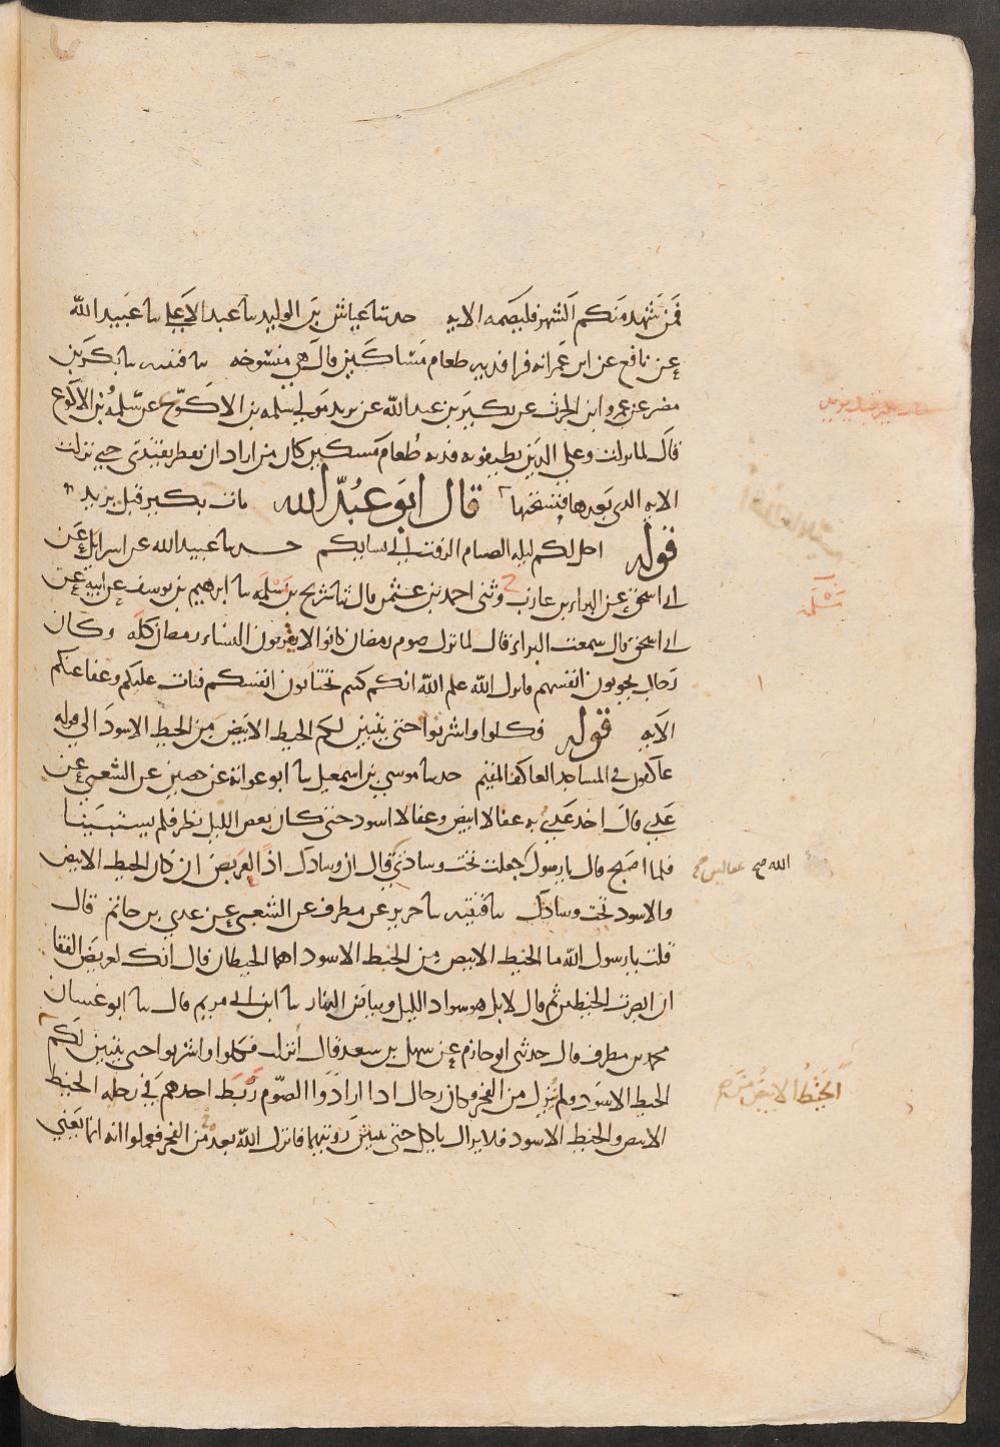 فمن شهد منكم الشهر فليصمه الايه حدثنا عياش بن الوليد ثنا عبد الاعلى ثنا عبيد الله
عن نافع عن ابن عمر انه قرا فديه طعام مساكين قال هي منسوخه ثنا قتيبه ثنا بكر بن
مضر عن عمرو ابن الحرث عن بكير بن عبد الله عن يزيد مولى سلمه بن الاكوع عن سلمه بن الاكوع
قال لما نزلت وعلى الذين يطيقونه فديه طعام مسكين كان من اراد ان يفطر يفتدي حتى نزلت
الايه التي بعدها فنسختها قال ابو عبد الله مات بكير قبل يزيد
قوله احل لكم ليله الصيام الرفث الى نسايكم حدثنا عبيد الله عن اسرايل عن
ابي اسحق عن البراء بن عازب ح وثنى احمد بن عثمن قال ثنا شريح بن مسلمه ثنا ابرهيم بن يوسف عن ابيه عن
ابي اسحق قال سمعت البراء قال لما نزل صوم رمضان كانوا لا يقربون النساء رمضان كله وكان
رجال يخونون انفسهم فانزل الله علم الله انكم كنتم تختانون انفسكم فتاب عليكم وعفا عنكم
الايه قوله وكلوا واشربوا حتى يتبين لكم الخيط الابيض من الخيط الاسود الى قوله
عاكفون في المساجد العاكف المقيم حدثنا موسى بن اسمعيل ثنا ابو عوانة عن حصين عن الشعبي عن
عدي قال اخذ عدي عقالا ابيض وعقالا اسود حتى كان بعض الليل نظر فلم يستبينا
فلما اصبح قال يا رسول جعلت تحت وسادتي قال ان وسادك اذا لعريض ان كان الخيط الابيض
والاسود تحت وسادك ثنا قتيبه ثنا جرير عن مطرف عن الشعبي عن عدي بن حاتم قال
قلت يا رسول الله ما الخيط الابيض من الخيط الاسود اهما الخيطان قال انك لعريض القفا
ان ابصرت الخيطين ثم قال لا بل هو سواد الليل وبياض النهار ثنا ابن ابي مريم قال ثنا ابو غسان
محمد بن مطرف قال حدثني ابو حازم عن سهل بن سعد قال انزلت وكلوا واشربوا حتى يتبين لكم
الخيط الاسود ولم تنزل من الفجر وكان رجال اذا ارادوا الصوم ربط احدهم في رجله الخيط
الابيض والخيط الاسود فلا يزال ياكل حتى يتبين رويتهما فانزل الله بعد من الفجر فعلموا انه انما يعني
مسلمه
الله صح
الخيط الابيض من صح